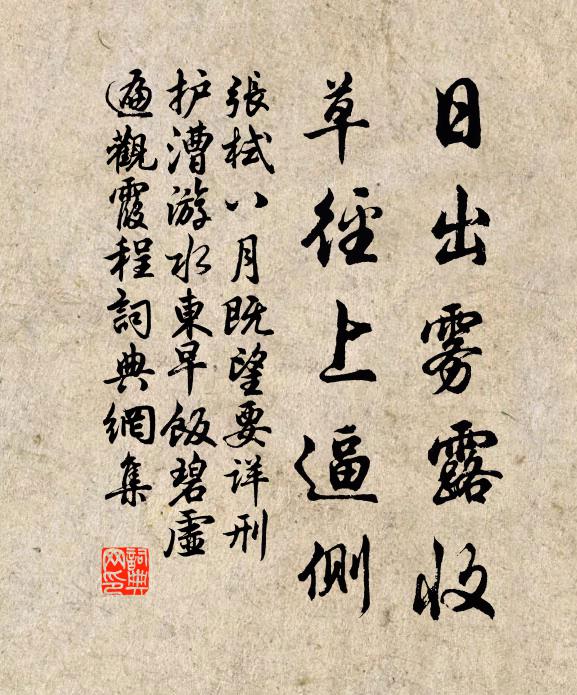 日出雾露收
草径上逼侧
張栻八月既望要详刑
护漕游水東早飯碧虚
遍觀霞程詞典網集
詞典网印